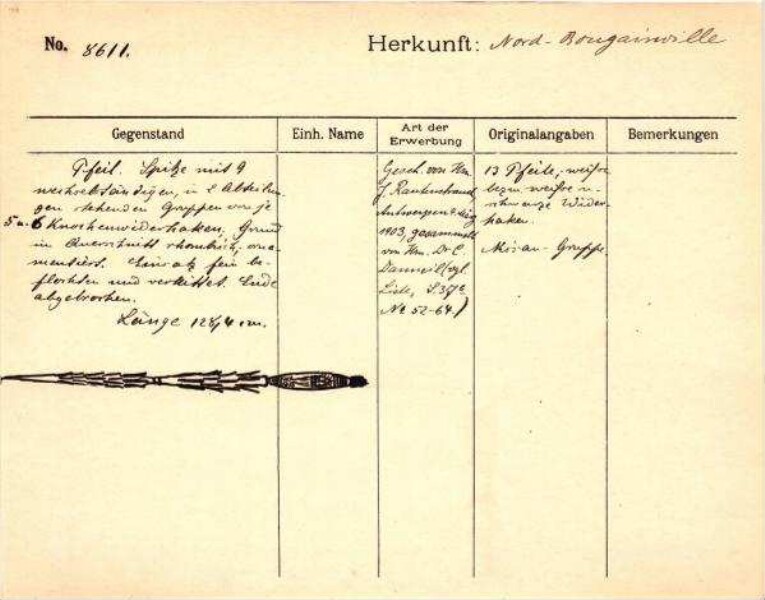 No. 8611.
Herkunft: Nord-Bougainville
Gegenstand
Einh. Name
Art der Erwerbung
Originalangaben
Bemerkungen
Pfeil. Spitze mit 9
wechselständigen, in 2 Abteilun-
gen stehenden Gruppen von je
5 u. 6 Knochenwiderhaken, Grund
im Querschnitt rhombisch, orna-
mentiert. Einsatz fein be-
flochten und verkittet. Ende
abgebrochen.
Länge 128,4 cm.
Gesch. von Hrn.
J. Rautenstrauch,
Antwerpen
1903, gesammelt
von Hrn. Dr C.
Danneil (vgl.
Liste, S.
No 52-64.)
13 Pfeile, weisse
bezw. weisse u.
schwarze Wider-
haken.
Gruppe.